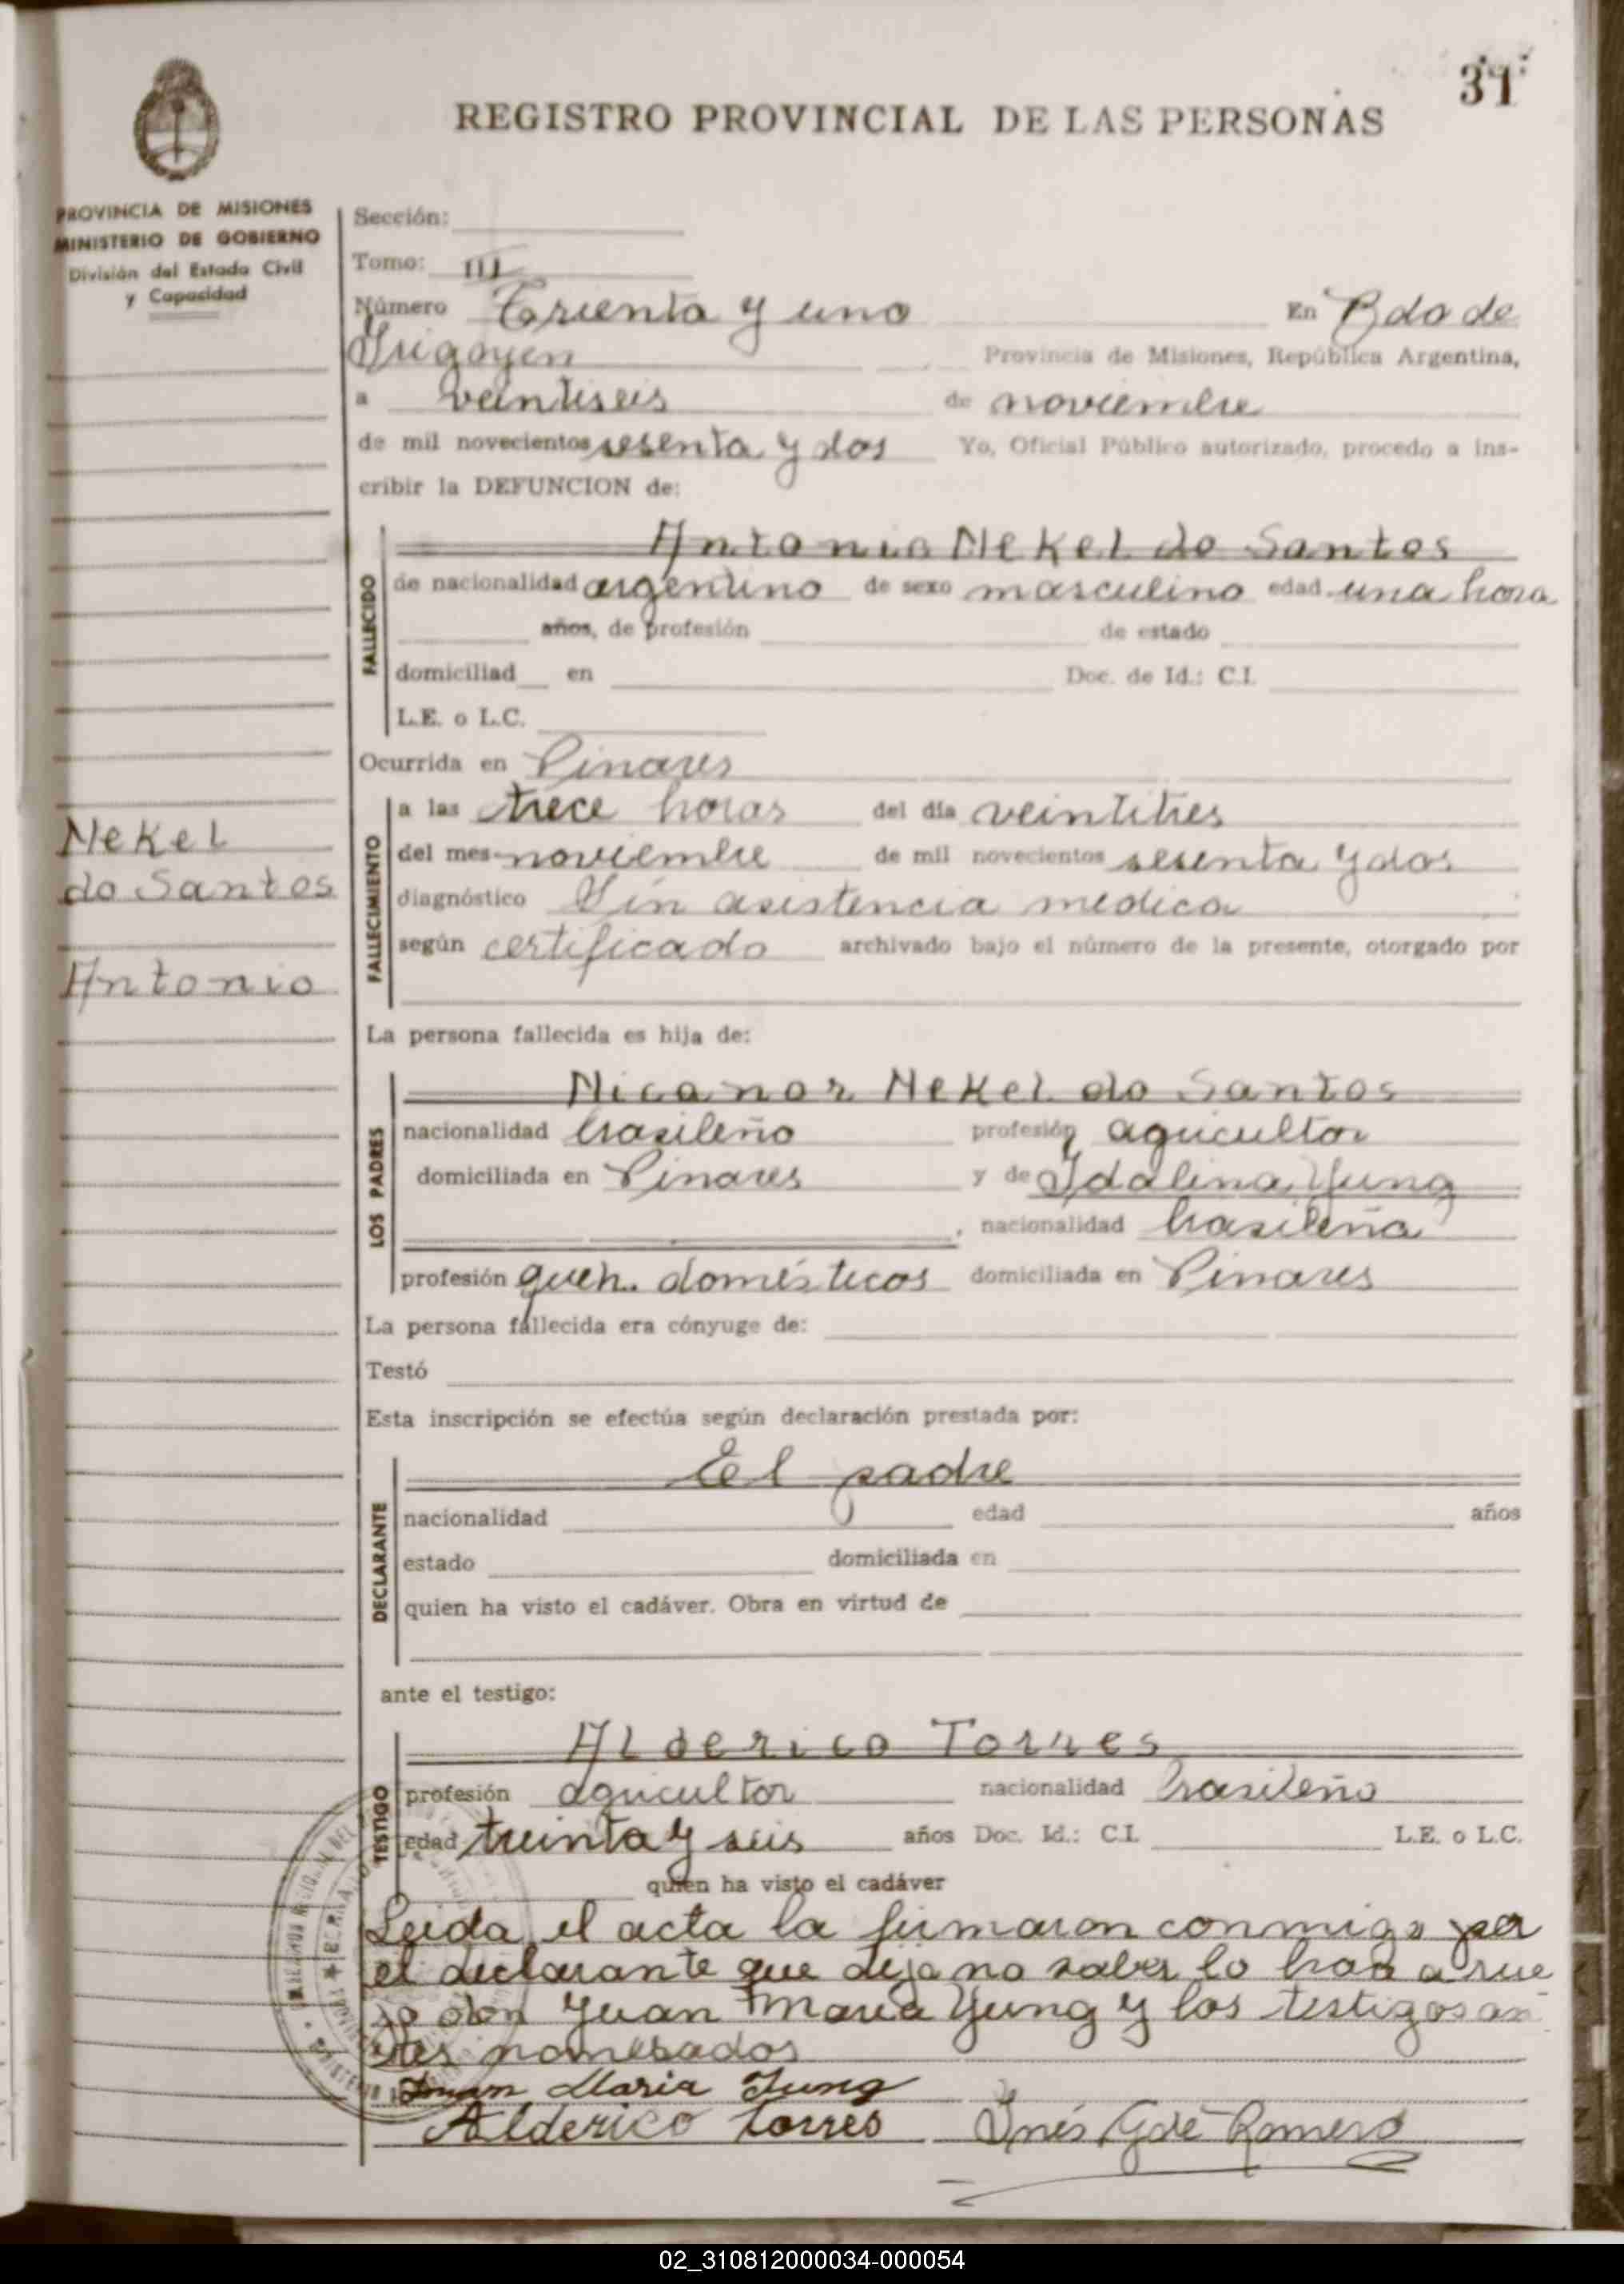 31
REGISTRO PROVINCIAL DE LAS PERSONAS
PROVINCIA DE MISIONES
MINISTERIO DE GOBIERNO
División del Estado Civil
y Capacidad
Sección:
Tomo: III
Número Trienta y uno En Bdo de
Yrigoyen Provincia de Misiones, República Argentina,
a veintiseis de noviembre
de mil novecientos sesenta y dos Yo, Oficial Público autorizado, procedo a ins-
cribir la DEFUNCION de:
FALLECIDO
Antonio Nekel do Santos
de nacionalidad argentino de sexo masculino edad una hora
años, de profesión de estado
domiciliad en Doc. de Id.: C.I.
L.E. o L.C.
Ocurrida en Pinares
Nekel
do Santos
Antonio
FALLECIMIENTO
a las trece horas del día veintitres
del mes noviembre de mil novecientos sesenta y dos
diagnóstico Sin asistencia medica
según certificado archivado bajo el número de la presente, otorgado por
La persona fallecida es hija de:
LOS PADRES
Nicanor Nekel do Santos
nacionalidad brasileño profesión agricultor
domiciliada en Pinares y de Idalina Yung
, nacionalidad brasileña
profesión queh. domésticos domiciliada en Pinares
La persona fallecida era cónyuge de:
Testó
Esta inscripción se efectúa según declaración prestada por:
DECLARANTE
El padre
nacionalidad edad años
estado domiciliada en
quien ha visto el cadáver. Obra en virtud de
ante el testigo:
TESTIGO
Alderico Torres
profesión agricultor nacionalidad brasileño
edad treinta y seis años Doc. Id.: C.I. L.E. o L.C.
quien ha visto el cadáver
Leida el acta la firmaron conmigo por
el declarante que dijo no saber lo hace a rue
go don Yuan Maria Yung y los testigos an
tes nombrados
Juan Maria Jung
Alderico torres Inés G de Romero
02_310812000034-000054